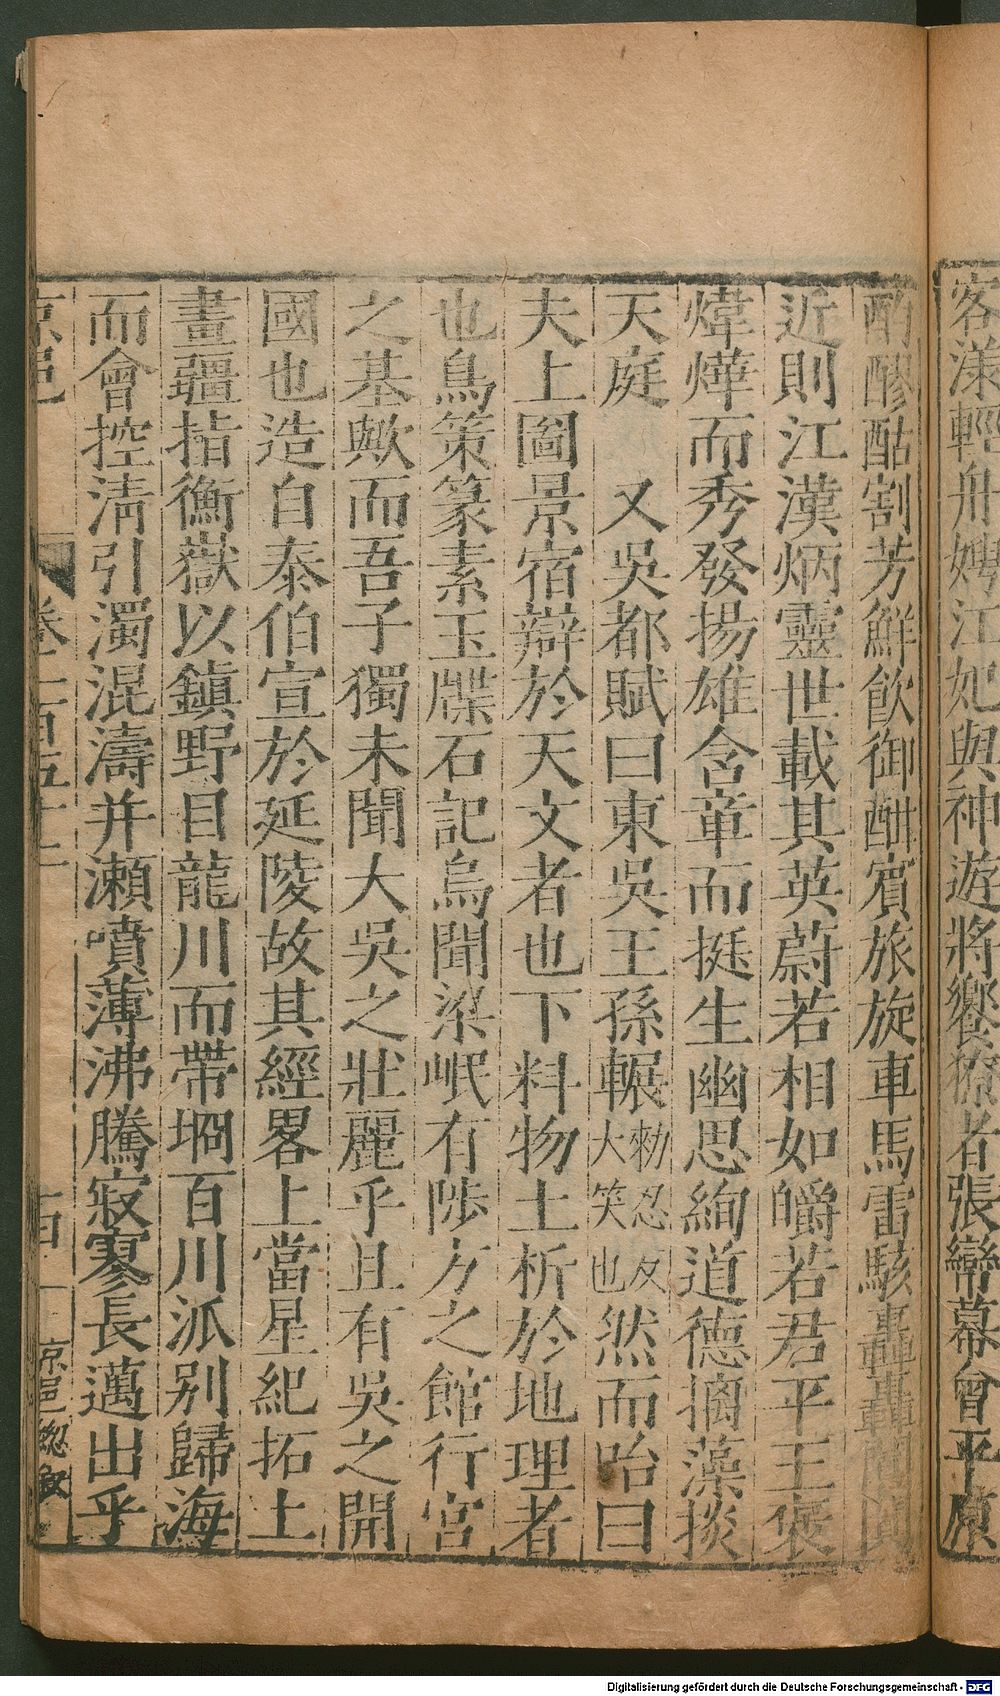 客漾輕舟娉江妃與神遊將饗獠者張巒幕會平原
酌醪酤割芳鮮飲御酣賓旅旋車馬雷駭轟轟闐闐
近則江漢炳靈世載其英蔚若相如皭若君平王褒
煒燁而秀發揚雄含章而挺生幽思絢道德摛藻掞
天庭　又吳都賦曰東吳王孫囅勑忍反大笑也然而咍曰
夫上圖景宿辯於天文者也下料物土析於地理者
也鳥策篆素玉牒石記烏聞梁岷有陟方之館行宮
之基歟而吾子獨未聞大吳之壯麗乎且有吳之開
國也造自泰伯宣於延陵故其經畧上當星紀拓土
畫疆指衡嶽以鎮野目龍川而帶坰百川派別歸海
而會控淸引濁混濤并瀨噴薄沸騰寂寥長邁出乎
京邑　卷二百五十二　百二　京邑總敘
Digitalisierung gefördert durch die Deutsche Forschungsgemeinschaft - DFG